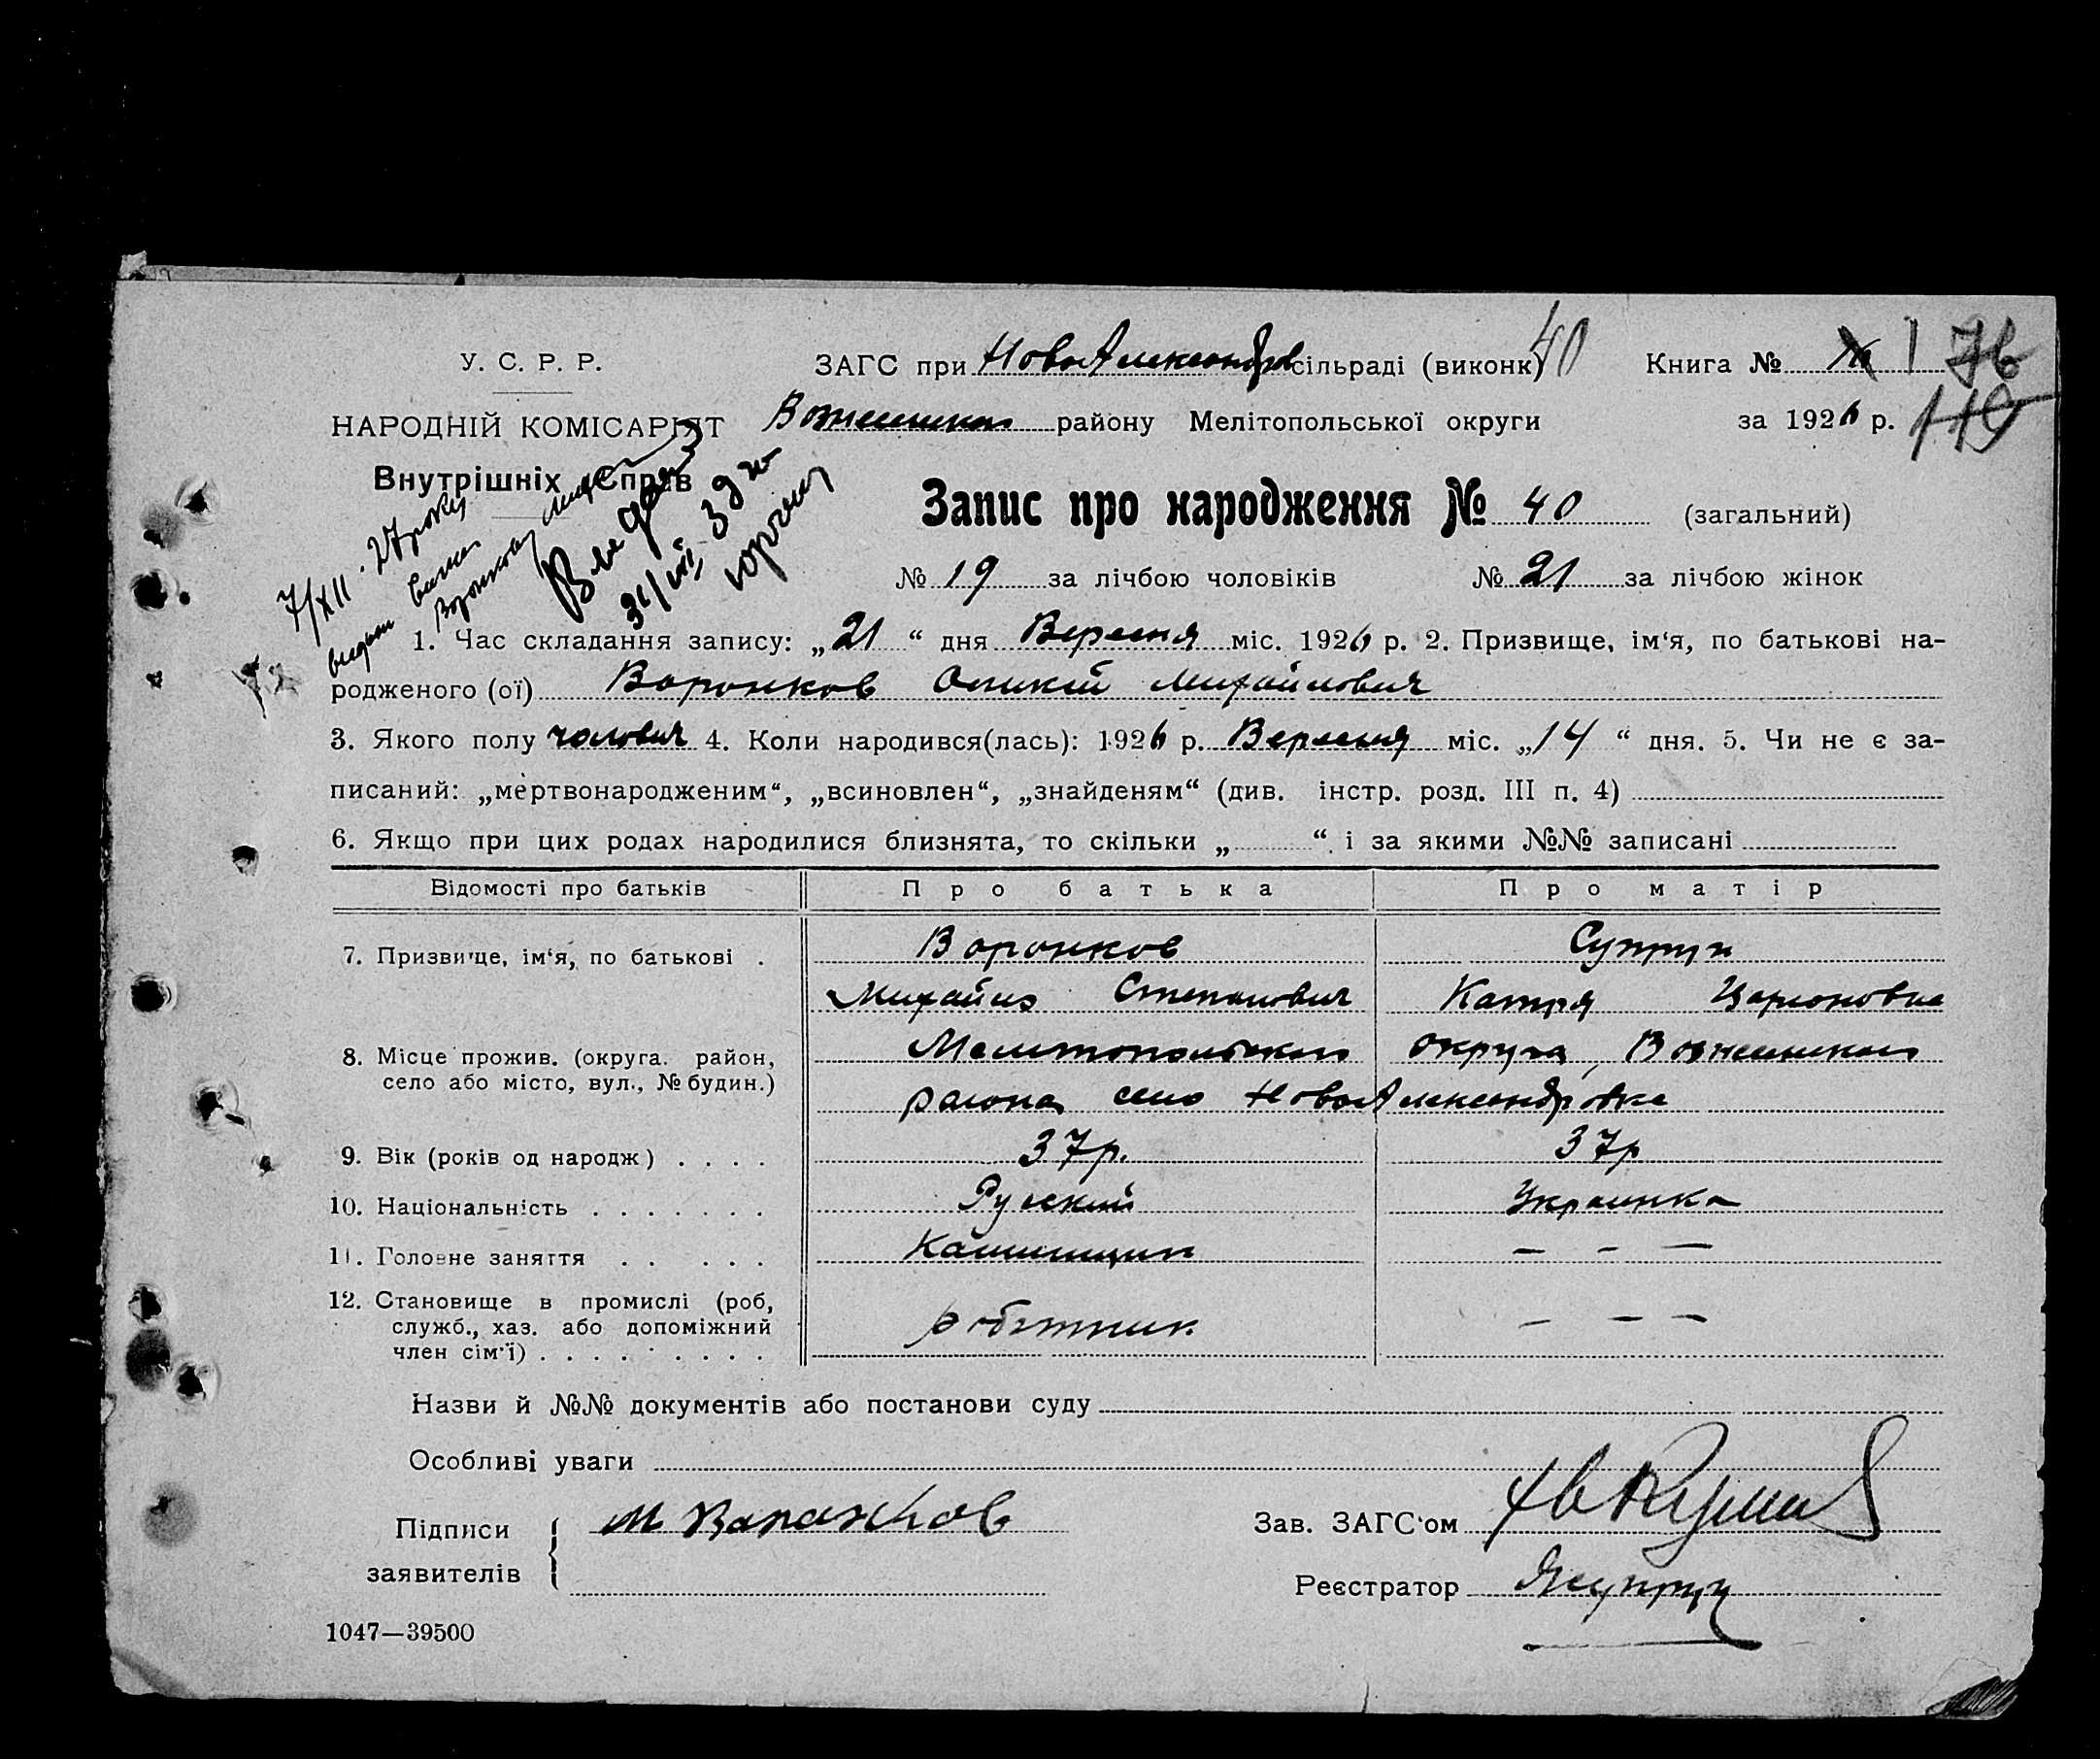 У. С. Р. Р.
ЗАГС при НовоАлександров сільраді (виконк) 40
Книга № 1 76
НАРОДНІЙ КОМІСАРІЯТ
району Мелітопольської округи
за 1926 р. 119
Внутрішніх Справ
Запис про народження № 40 (загальний)
7/XII. 27 року
№ 19 за лічбою чоловіків № 21 за лічбою жінок
1. Час складання запису: „21“ дня Вересня міс. 1926 р. 2. Призвище, ім‘я, по батькові на-
родженого (ої) Воронков Михайлович
3. Якого полу чоловіч 4. Коли народився(лась): 1926 р. Вересня міс. „14“ дня. 5. Чи не є за-
писаний: „мертвонародженим“, „всиновлен“, „знайденям“ (див. інстр. розд. III п. 4)
6. Якщо при цих родах народилися близнята, то скільки „ “ і за якими №№ записані
Відомості про батьків Про батька Про матір
7. Призвище, ім‘я, по батькові . Воронков Супрун
Михайло Степанович Катря
8. Місце прожив. (округа. район, округа,
село або місто, вул., № будин.)
района село НовоАлександровка
9. Вік (років од народж) . . . . 37р. 37р
10. Національність . . . . . . . Руский Украинка
11. Головне заняття . . . . . Каминщик – – –
12. Становище в промислі (роб,
служб., хаз. або допоміжний робітник – – –
член сім‘ї) . . . . . . . . .
Назви й №№ документів або постанови суду
Особливі уваги
Підписи М Воронков
Зав. ЗАГС‘ом
заявителів
Реєстратор
1047—39500